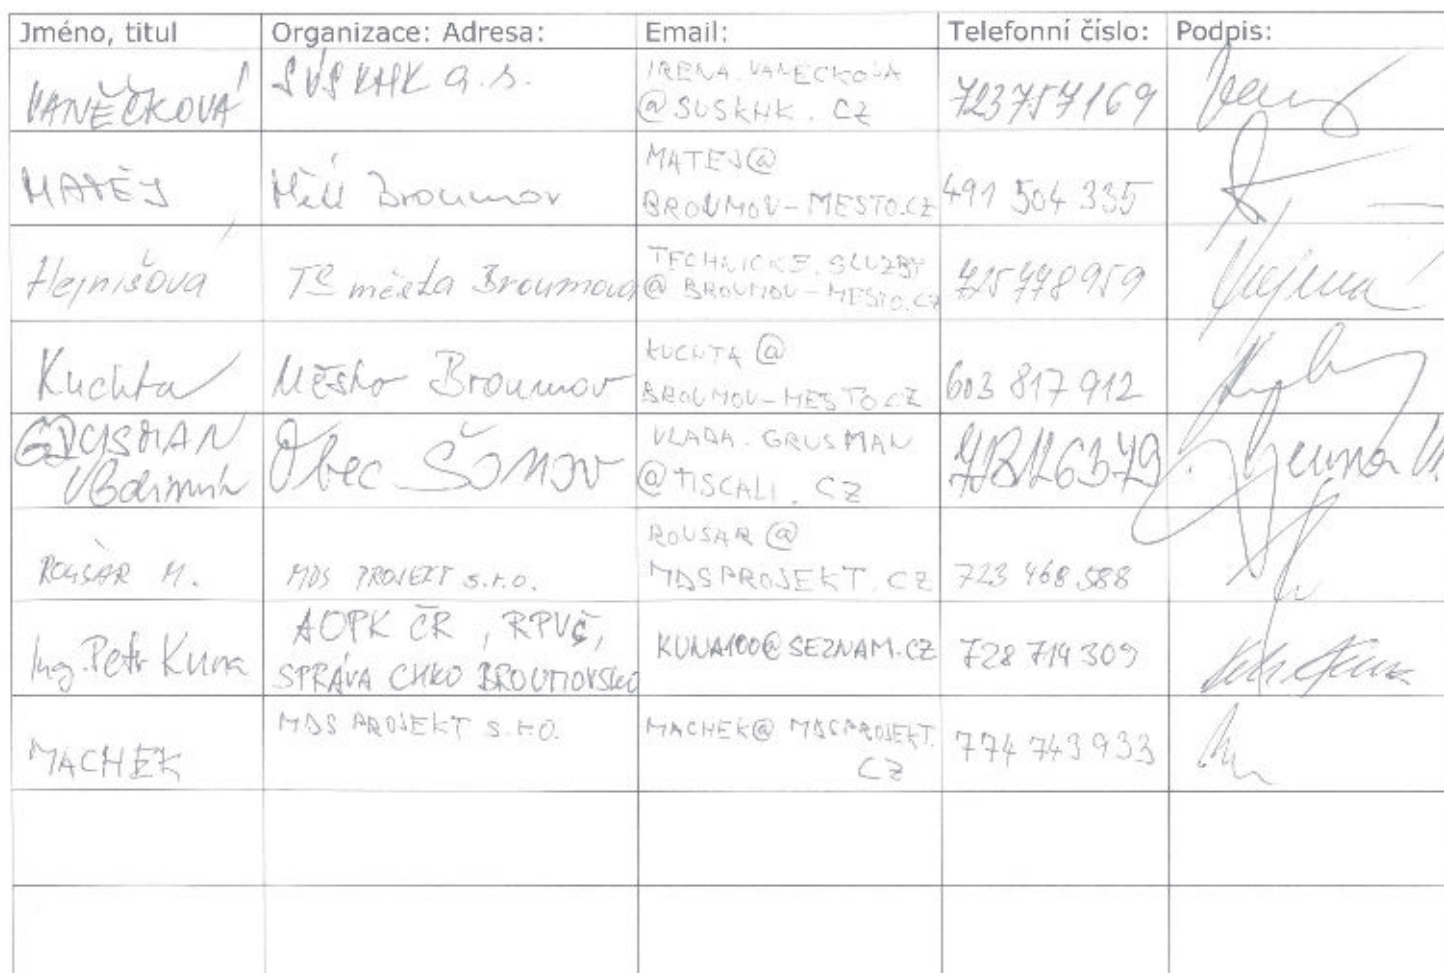 Jméno, titul Organizace: Adresa: Email: Telefonní číslo: Podpis:
VANĚČKOVÁ SÚS KHK a.s. IRENA.VANECKOVA
@SUSKHK.CZ 723757169
MATĚJ MěÚ Broumov MATEJ@
BROUMOV-MESTO.CZ 491 504 335
Hejnišová TS města Broumova TECHNICKE.SLUZBY
@BROUMOV-MESTO.CZ 725778959
Kuchta Město Broumov KUCHTA@
BROUMOV-MESTO.CZ 603 817 912
GRUSMAN Obec Šonov VLADA.GRUSMAN
Vladimír @TISCALI.CZ
ROUSAR M. MDS PROJEKT s.r.o. ROUSAR@
MDSPROJEKT.CZ 723 468 588
Ing. Petr Kuna AOPK ČR, RPVČ,
SPRÁVA CHKO BROUMOVSKO KUNA100@SEZNAM.CZ 728 714 309
MACHEK MDS PROJEKT S.R.O. MACHEK@MDSPROJEKT.
CZ 774 743 933